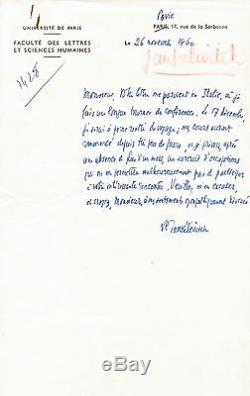 Pavie
UNIVERSITÉ DE PARIS
PARIS, 17, rue de la Sorbonne
FACULTÉ DES LETTRES
ET SCIENCES HUMAINES
Le 26 novembre 1960
Jankélévitch
Monsieur, Votre lettre me parvient en Italie, où je
fais une longue tournée de conférences. Le 17 décembre,
je serai à peine rentré de voyage; mes cours auront
commencé depuis peu de jours, et j'aurai, après
une absence de plus d'un mois, un surcroît d'occupations
qui ne me permettra malheureusement pas de participer
à votre intéressante rencontre. Veuillez m'en excuser,
et croyez, Monsieur, à mes sentiments sympathiquement dévoués
VJankélévitch